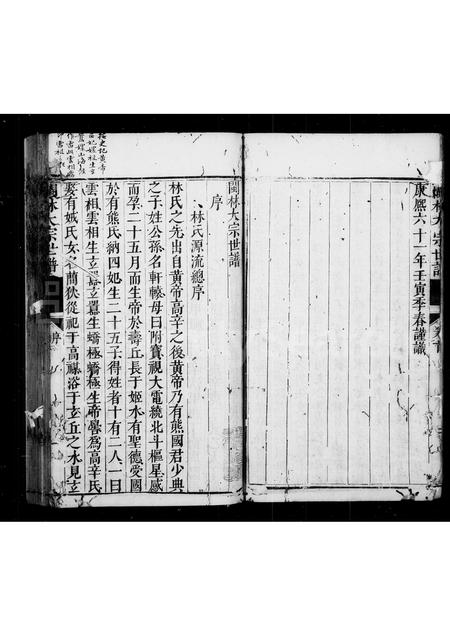 閩林大宗世譜
康熙六十一年壬寅季春謹識
閩林大宗世譜
序
林氏源流總序
林氏之先出自黃帝高辛之後黃帝乃有熊國君少典
之子姓公孫名軒轅母曰附寶視大電繞北斗樞星感
而孕二十五月而生帝於壽丘長于姬水有聖德受國
於有熊氏納四妃生二十五子得姓者十有二人一曰
雲祖雲相生玄囂玄囂生蟜極蟜極生帝嚳為高辛氏
娶有娀氏女簡狄從祀于高禖浴于玄丘之水見玄
閩林大宗世譜
序